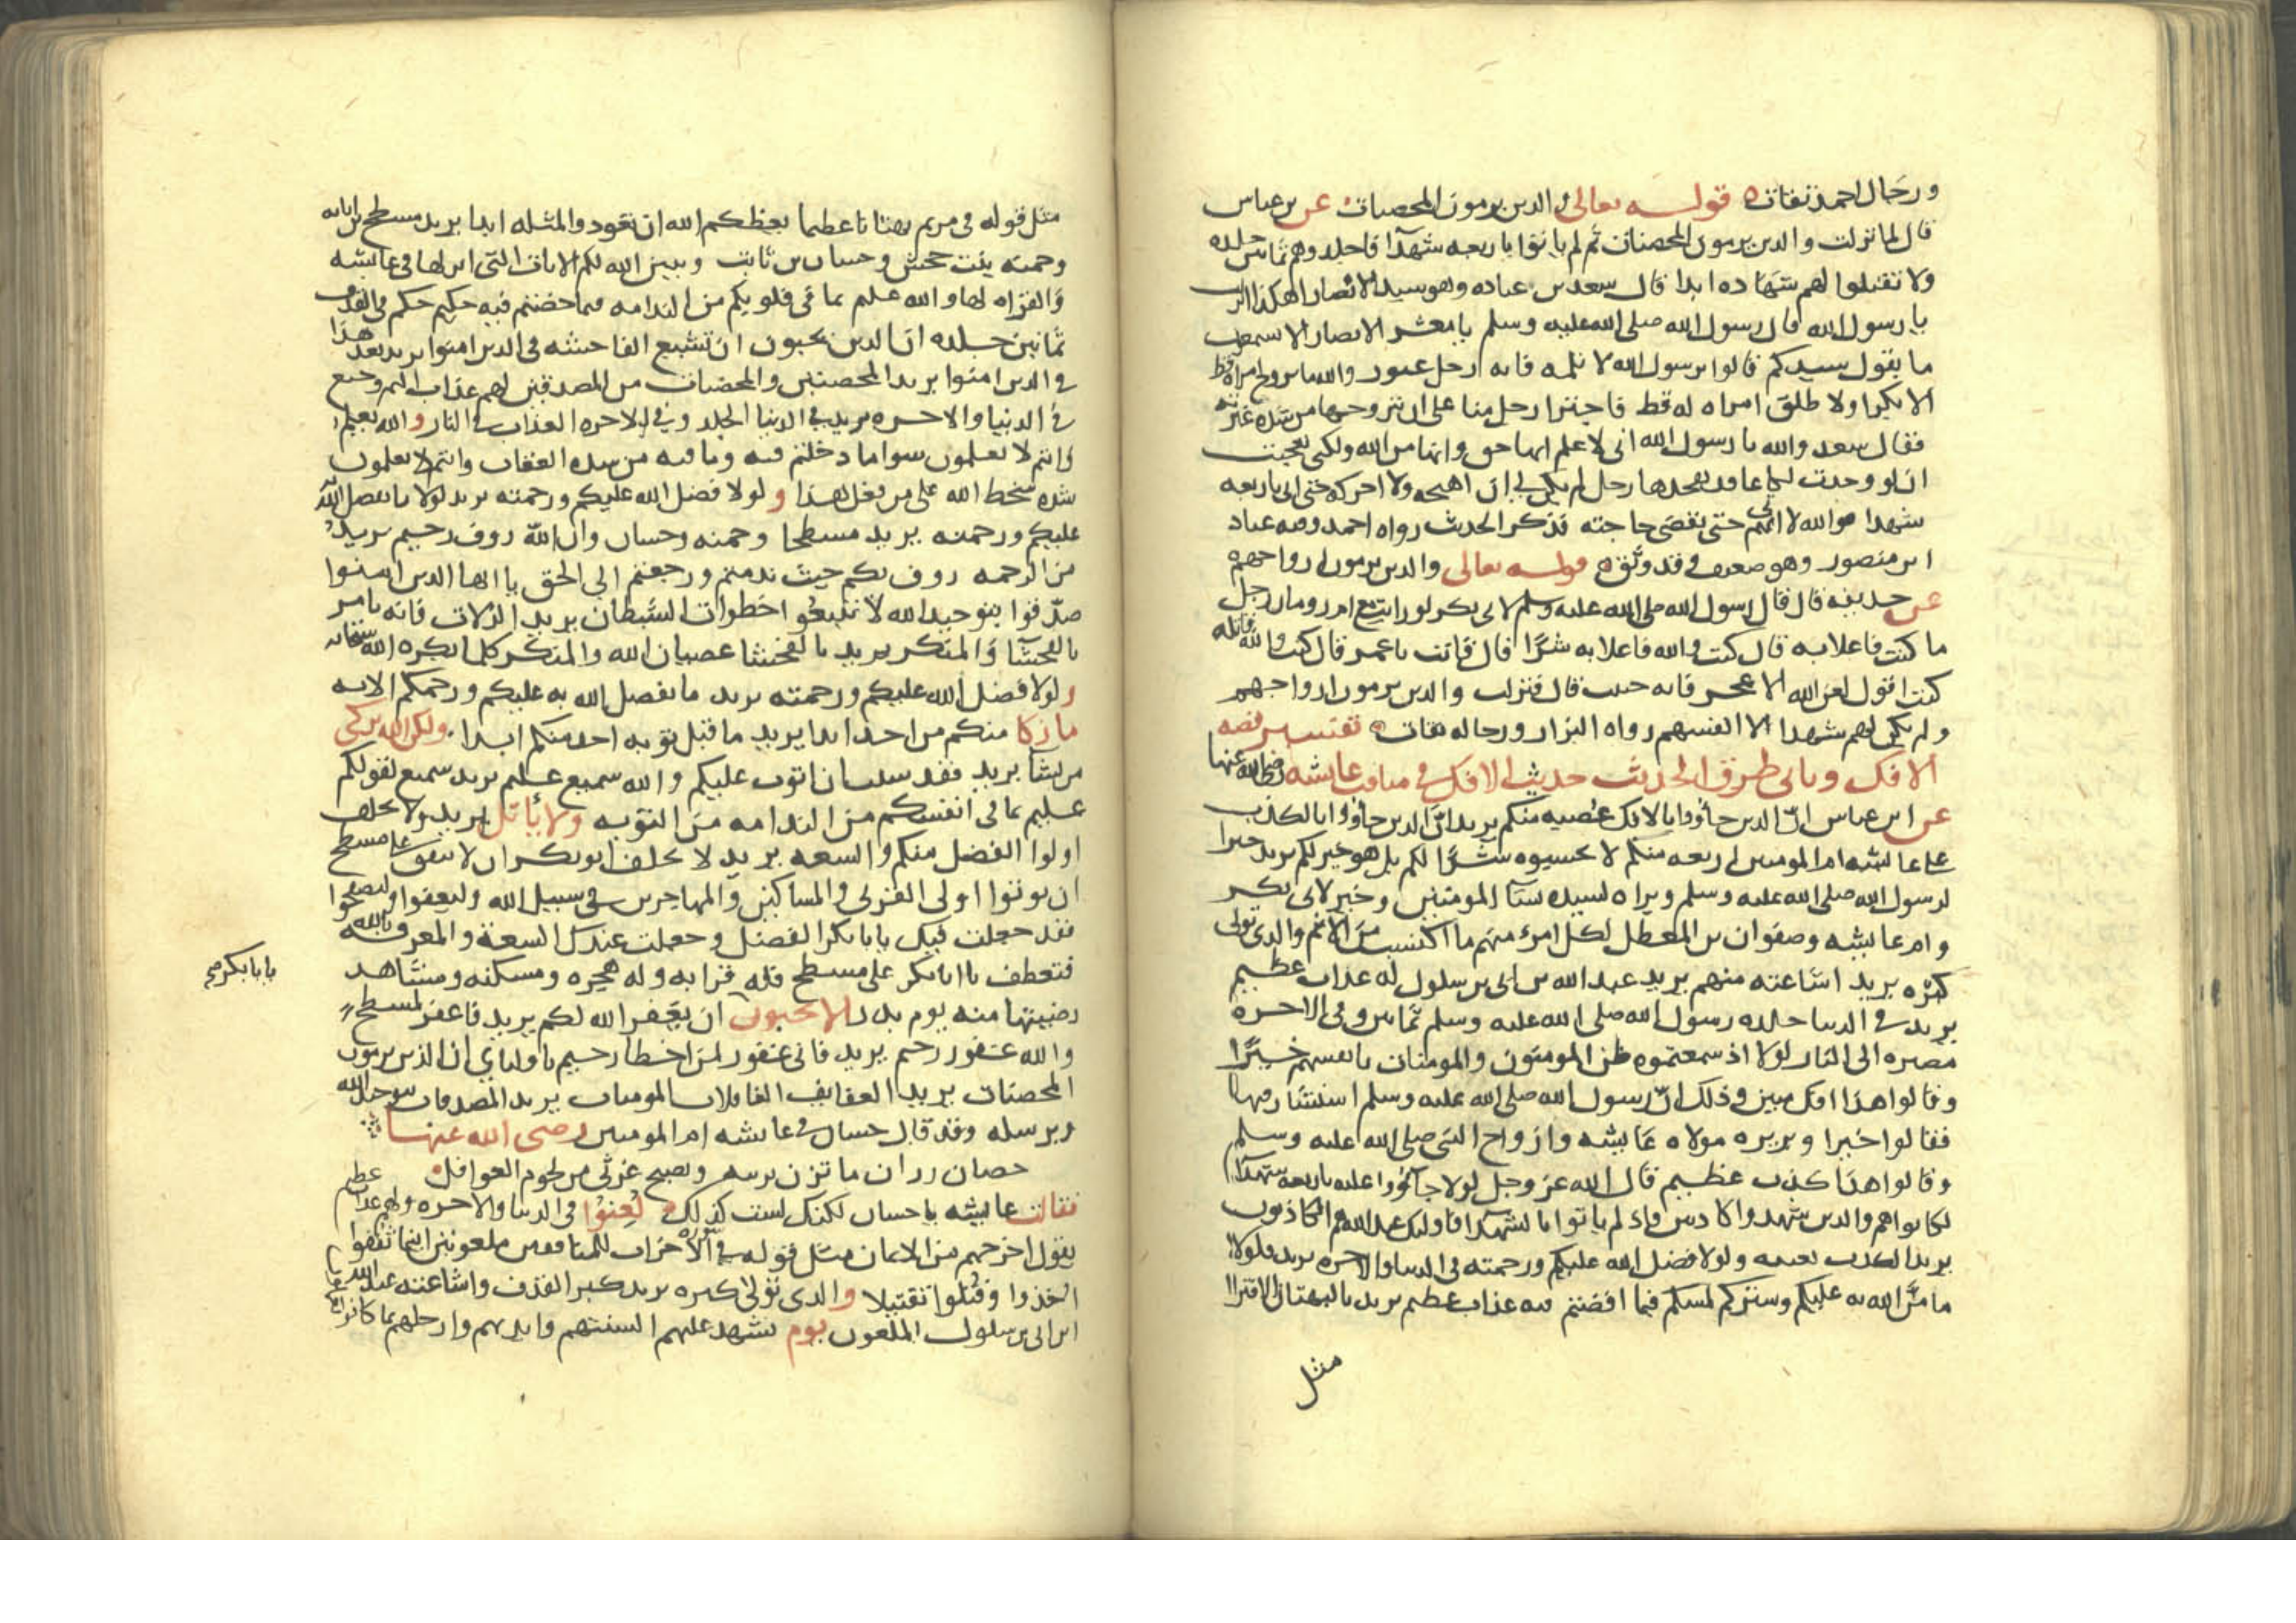 ورجال احمد ثقات قوله تعالى والذين يرمون المحصنات عن بن عباس
قال لما نزلت والذين يرمون المحصنات ثم لم ياتوا باربعه شهدآ فاجلدوهم ثمانين جلده
ولا تقبلوا لهم شهاده ابدا قال سعد بن عباده وهو سيد الانصار اهكذا انزلت
يا رسول الله قال رسول الله صلى الله عليه وسلم يا معشر الانصار الا تسمعون
ما يقول سيدكم قالوا يرسول الله لا تلمه فانه رجل غيور والله ما تزوج امراة قط
الا بكرا ولا طلق امراه له قط فاجترا رجل منا على ان يتزوجها من شده غيرته
فقال سعد والله يا رسول الله اني لاعلم انها حق وانها من الله ولكني تعجبت
ان لو وجدت لكاعا قد تفخدها رجل لم يكن لي ان اهيجه ولا احركه حتى اتي باربعه
شهدا فوالله لا اتي بهم حتى يقضى حاجته فذكر الحديث رواه احمد وفيه عباد
ابن منصور وهو ضعيف وقد وثق قوله تعالى والذين يرمون ازواجهم
عن حذيفه قال قال رسول الله صلى الله عليه وسلم لابي بكر لو رايت مع ام رومان رجل
ما كنت فاعلا به قال كنت والله فاعلا به شرًا قال فانت يا عمر قال كنت والله قاتله
كنت اقول لعن الله الاعجز فانه خبيث قال فنزلت والذين يرمون ازواجهم
ولم يكن لهم شهدا الا انفسهم رواه البزار ورجاله ثقات تفسير قصه
الافك وياتي طرق الحديث حديث الافك في مناقب عايشه رضي الله عنها
عن ابن عباس انّ الذين جاؤوا بالافك عصبه منكم يريد انّ الذين جاؤوا بالكذب
على عايشه ام المومنين اربعه منكم لا تحسبوه شرًا لكم بل هو خير لكم يريد خيرا
لرسول الله صلى الله عليه وسلم وبراه لسيده نسآ المومنين وخير لابي بكر
وام عايشه وصفوان بن المعطل لكل امرء منهم ما اكتسب من الاثم والذي تولى
كبرْه يريد اشاعته منهم يريد عبد الله بن ابي بن سلول له عذاب عظيم
يريد في الدنيا جلده رسول الله صلى الله عليه وسلم ثمانين وفي الاخره
مصيره الى النار لولا اذ سمعتموه ظن المومنون والمومنات بانفسهم خيرًا
وقالوا هذا افك مبين وذلك انّ رسول الله صلى الله عليه وسلم استشار فيها
فقالوا خيرا وبريره مولاه عايشه وازواج النبي صلى الله عليه وسلم
وقالوا هذا كذب عظيم قال الله عز وجل لولا جآؤوا عليه باربعه شهدآ
لكانوا هم والذين شهدوا كاذبين فاذ لم ياتوا بالشهدآ فاوليك عند الله هم الكاذبون
يريد الكذب بعينه ولولا فضل الله عليكم ورحمته في الدنيا والاخره يريد فلولا
ما منَّ الله به عليكم وستركم لمسكم فيما افضتم فيه عذاب عظيم يريد بالبهتان الافترا
مثل
مثل قوله في مريم بهتانا عظيما يعظكم الله ان تعودوا لمثله ابدا يريد مسطح بن اثاثه
وحمنه بنت جحش وحسان بن ثابت ويبين الله لكم الايات التي انزلها في عايشه
والبراه لها والله عليم بما في قلوبكم من الندامه فيما خضتم فيه حكيم حكم في القذف
ثمانين جلده ان الذين يحبون ان تشيع الفاحشه في الذين امنوا يريد بعد هذا
في الذين امنوا يريد المحصنين والمحصنات من المصدقين لهم عذاب اليم وجيع
في الدنيا والاخره يريد في الدنيا الجلد وفي الاخره العذاب في النار والله يعلم
وانتم لا تعلمون سوا ما دخلتم فيه وما فيه من شده العقاب وانتم لا تعلمون
شده سخط الله على من فعل هذا ولولا فضل الله عليكم ورحمته يريد لولا ما تفضل الله
عليكم ورحمته يريد مسطحا وحمنه وحسان وان الله روف رحيم يريد
من الرحمه روف بكم حيث ندمتم ورجعتم الى الحق يا ايها الذين امنوا
صدّقوا بتوحيد الله لا تتبعوا خطوات الشيطان يريد الزلات فانه يامر
بالفحشآ والمنكر يريد بالفحشا عصيان الله والمنكر كلما يكره الله سبحانه
ولولا فضل الله عليكم ورحمته يريد ما تفضل الله به عليكم ورحمكم الايه
ما زكا منكم من احد ابدا يريد ما قبل توبه احد منكم ابدا ولكن الله يزكي
من يشا يريد فقد شيت ان اتوب عليكم والله سميع عليم يريد سميع لقولكم
عليم بما في انفسكم من الندامه من التوبه ولا ياتل يريد ولا يحلف
اولوا الفضل منكم والسعه يريد لا يحلف ابو بكر ان لا ينفق على مسطح
ان يوتوا اولي القربى والمساكين والمهاجرين في سبيل الله وليعفوا وليصفحوا
فقد جعلت فيك يابا بكر الفضل وجعلت عندك السعة والمعرفه بالله
فتعطف يا ابا بكر على مسطح فله قرابه وله هجره ومسكنه ومشاهد
يابا بكر صح
رضيتها منه يوم بدر الا تحبون ان يغفر الله لكم يريد فاغفر لمسطح
والله غفور رحيم يريد فاني غفور لمن اخطا رحيم باوليايي ان الذين يرمون
المحصنات يريد العفايف الغافلات المومنات يريد المصدقات بتوحيد الله
وبرسله وقد قال حسان في عايشه ام المومنين رضي الله عنها
حصان رزان ما تزن بريبه وتصبح غرثى من لحوم الغوافل
فقالت عايشه يا حسان لكنك لست كذلك لُعِنوُا في الدنيا والاخره ولهم عذاب عظيم
يقول اخرجهم من الايمان مثل قوله في سوره الاحزاب للمنافقين ملعونين اينما ثقفوا
اخذوا وقتلوا تقتيلا والذي تولى كبره يريد كبر القذف واشاعته عبد الله
ابن ابي بن سلول الملعون يوم تشهد عليهم السنتهم وايديهم وارجلهم بما كانوا